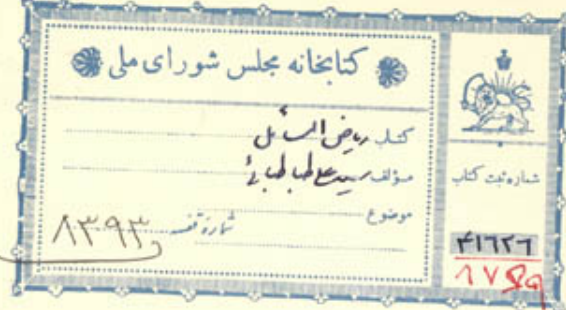 کتابخانه مجلس شورای ملی
کتاب ریاض المسائل
مؤلف سید علی طباطبائی
موضوع
شمارهٔ قفسه ۸۳۹۳
شماره ثبت کتاب
۴۱۶۲۶